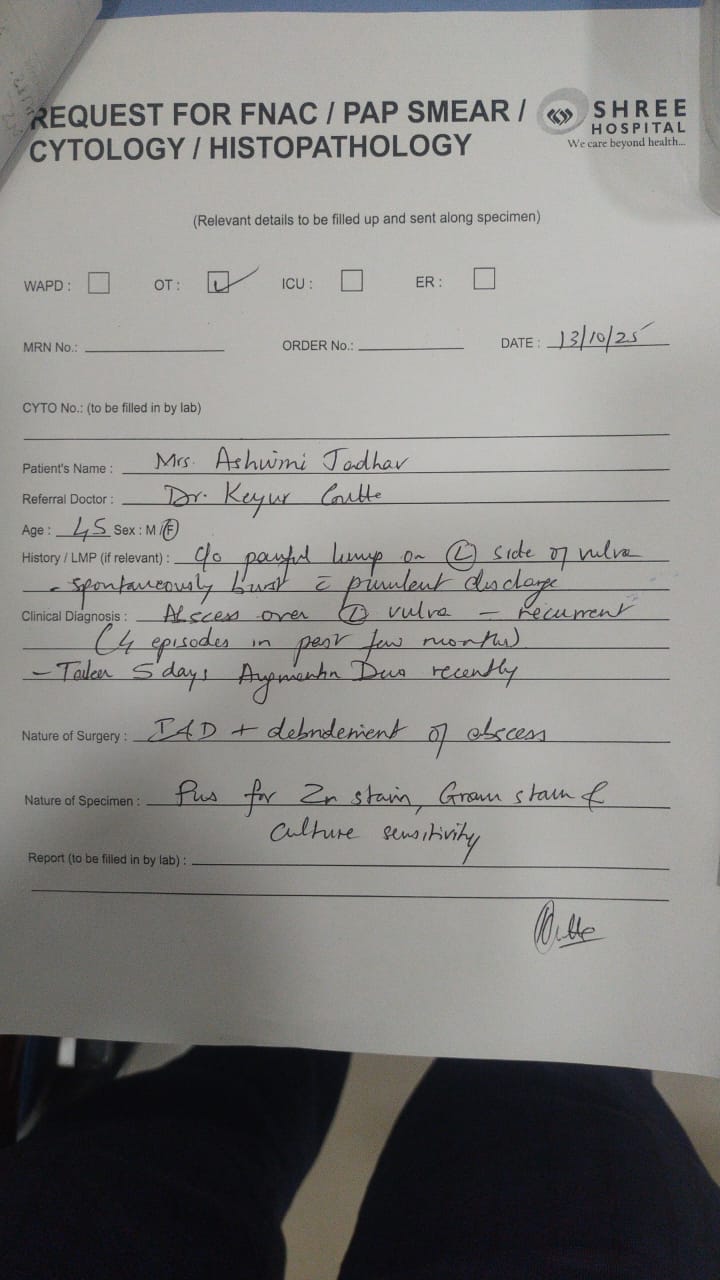 REQUEST FOR FNAC / PAP SMEAR /
CYTOLOGY / HISTOPATHOLOGY
SHREE
HOSPITAL
We care beyond health...
(Relevant details to be filled up and sent along specimen)
WAPD : OT : ICU : ER :
MRN No.: ORDER No.: DATE : 13/10/25
CYTO No.: (to be filled in by lab)
Patient's Name : Mrs. Ashwini Jadhav
Referral Doctor : Dr. Keyur
Age : 45 Sex : M / F
History / LMP (if relevant) : c/o painful lump on L side of vulva
- spontaneously burst c̄ purulent discharge
Clinical Diagnosis : Abscess over L vulva - recurrent
(4 episodes in past few months)
- Taken 5 days Augmentin Duo recently
Nature of Surgery : I&D + debridement of abscess
Nature of Specimen : Pus for Zn stain, Gram stain &
Culture sensitivity
Report (to be filled in by lab) :